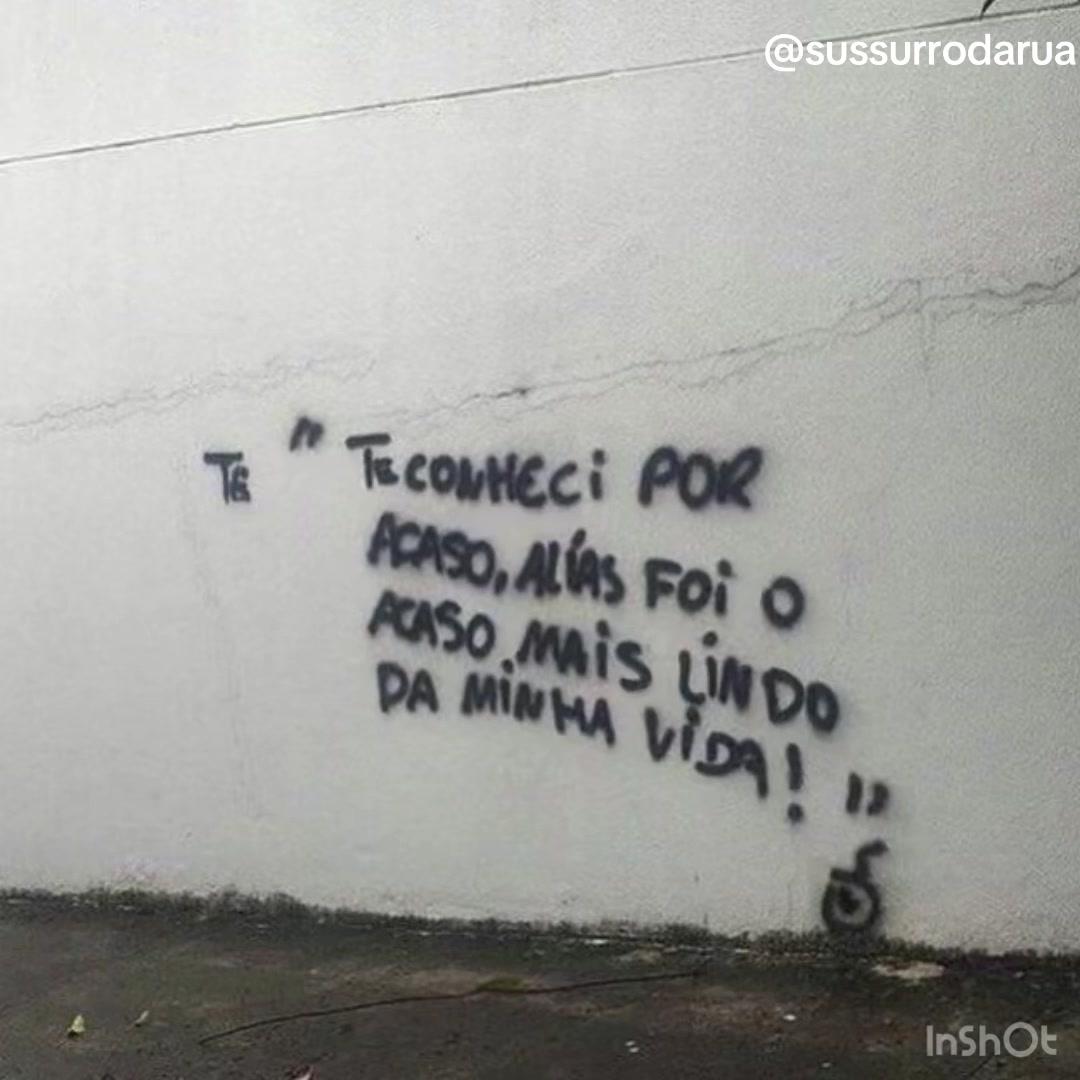 @sussurrodarua
TE " TE CONHECi POR
ACASO, ALÍAS FOi O
ACASO MAiS LiNDO
DA MiNHA ViDA! "
InShOt